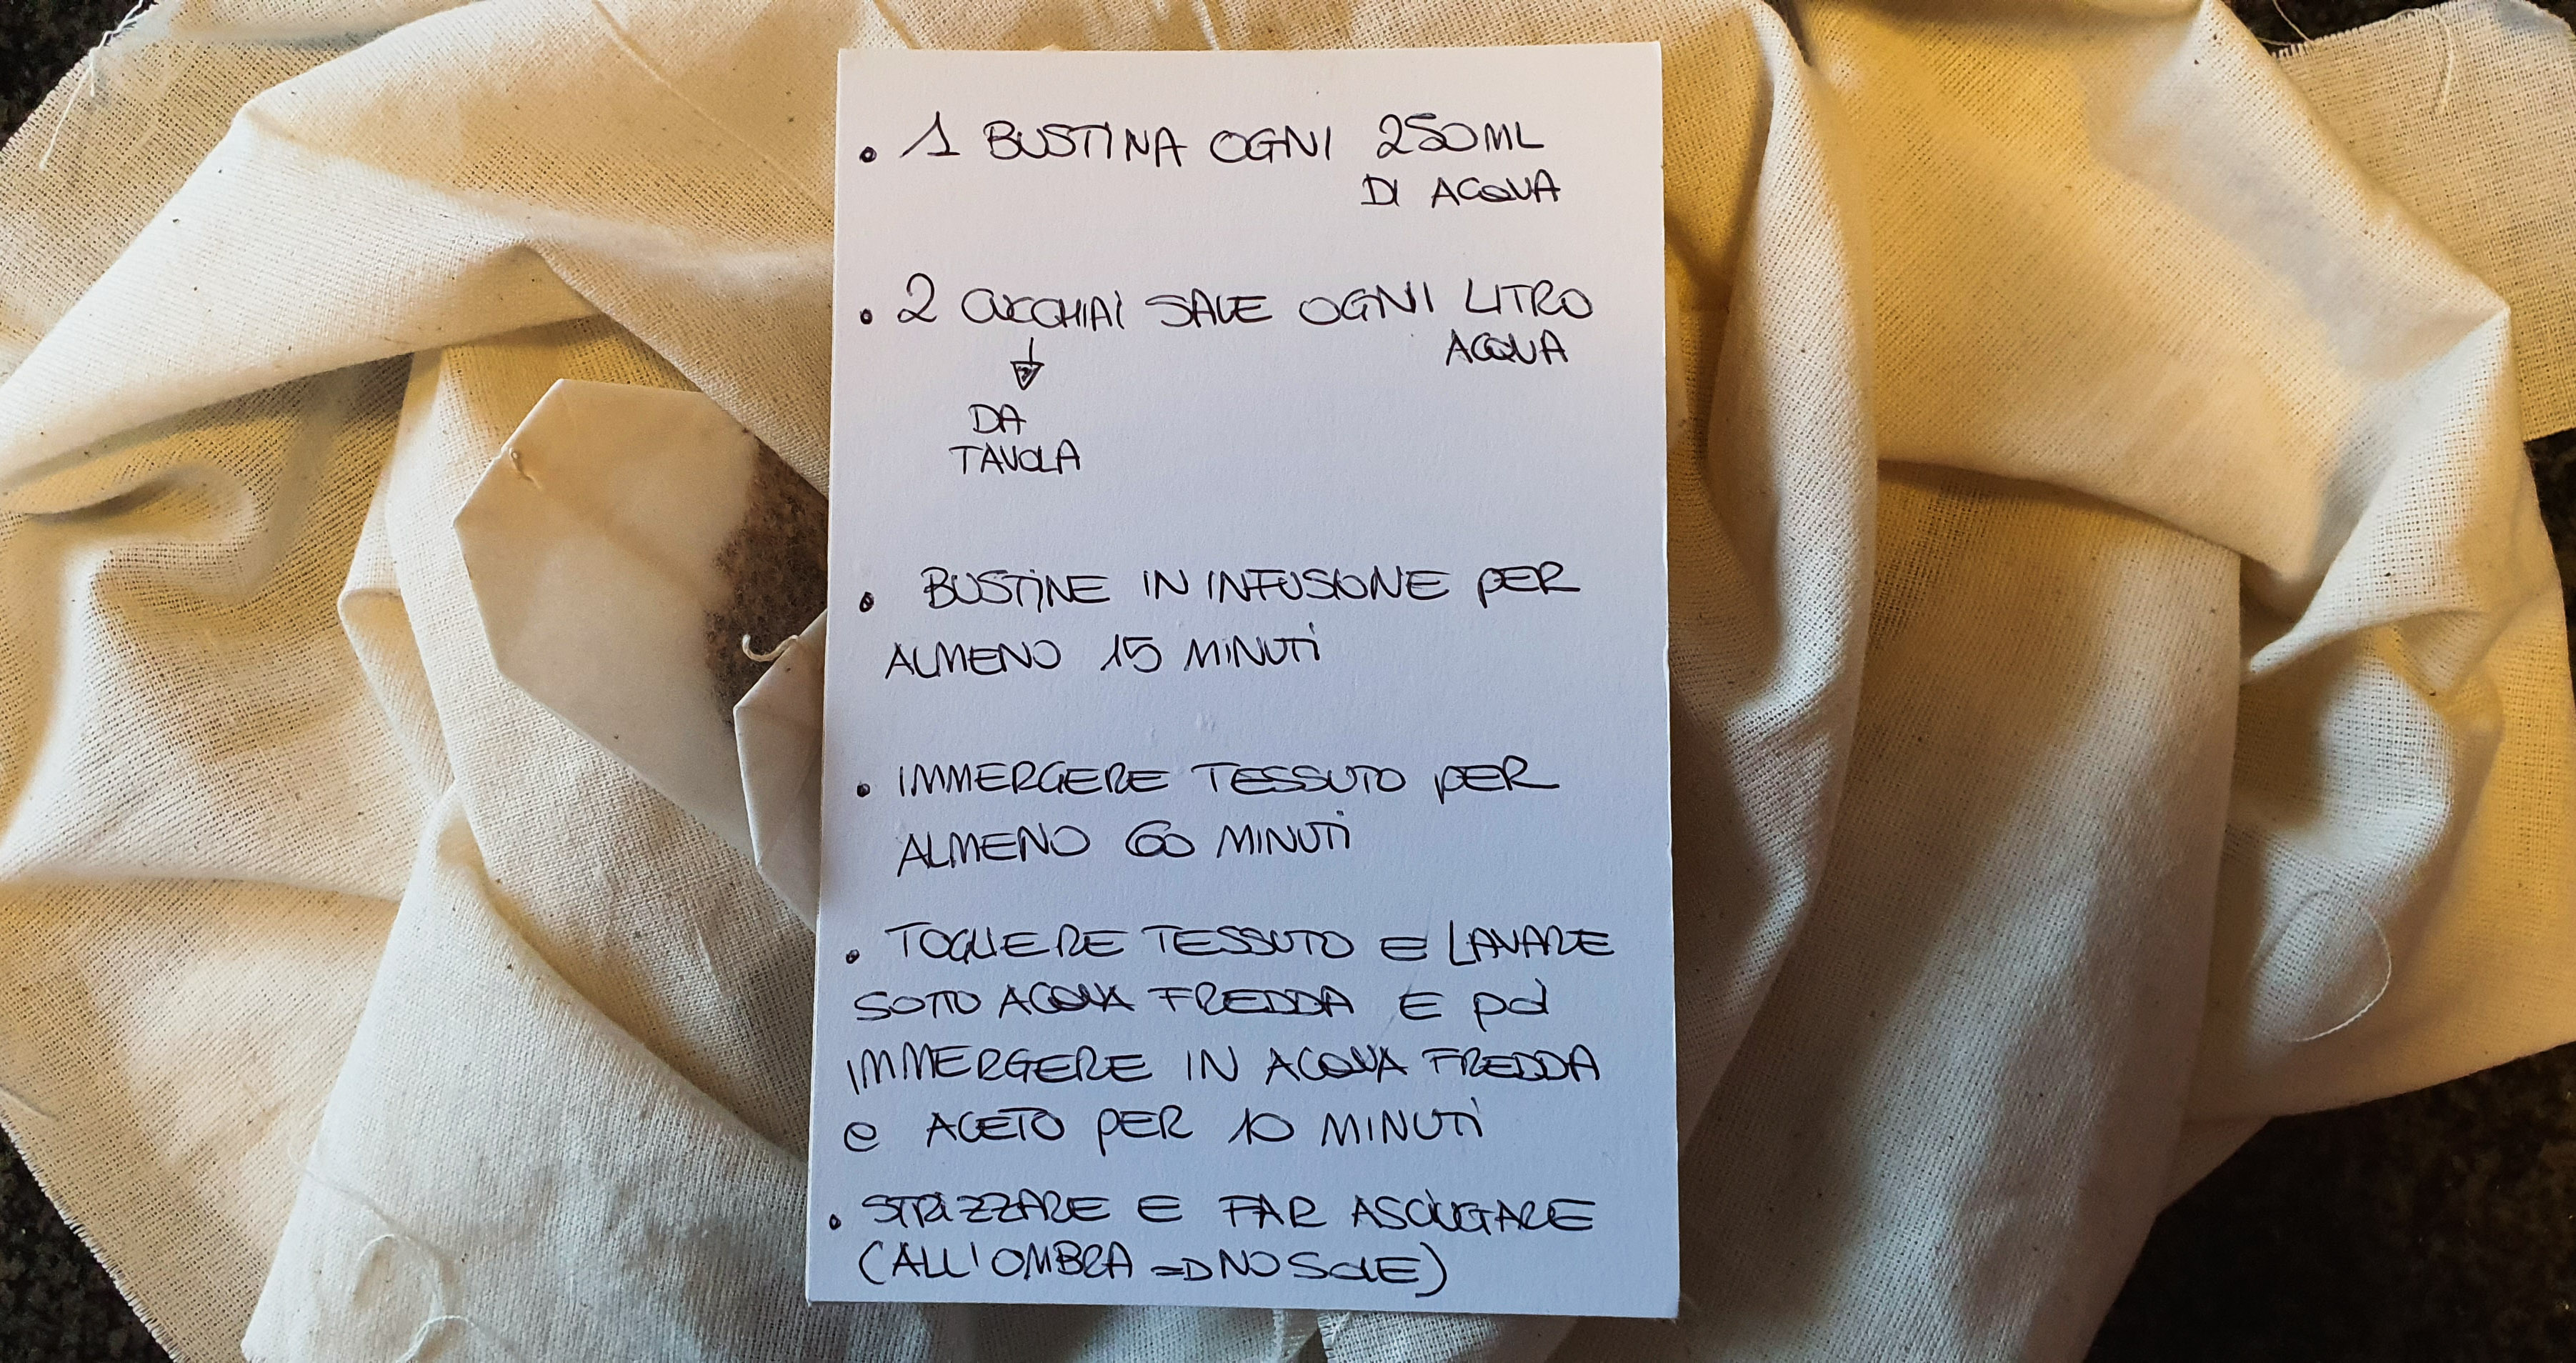 • 1 BUSTINA OGNI 250ML
DI ACQUA
• 2 CUCCHIAI SALE OGNI LITRO
ACQUA
DA
TAVOLA
• BUSTINE IN INFUSIONE PER
ALMENO 15 MINUTI
• IMMERGERE TESSUTO PER
ALMENO 60 MINUTI
• TOGLIERE TESSUTO E LAVARE
SOTTO ACQUA FREDDA E POI
IMMERGERE IN ACQUA FREDDA
e ACETO PER 10 MINUTI
• STRIZZARE E FAR ASCIUGARE
(ALL'OMBRA => NO SOLE)